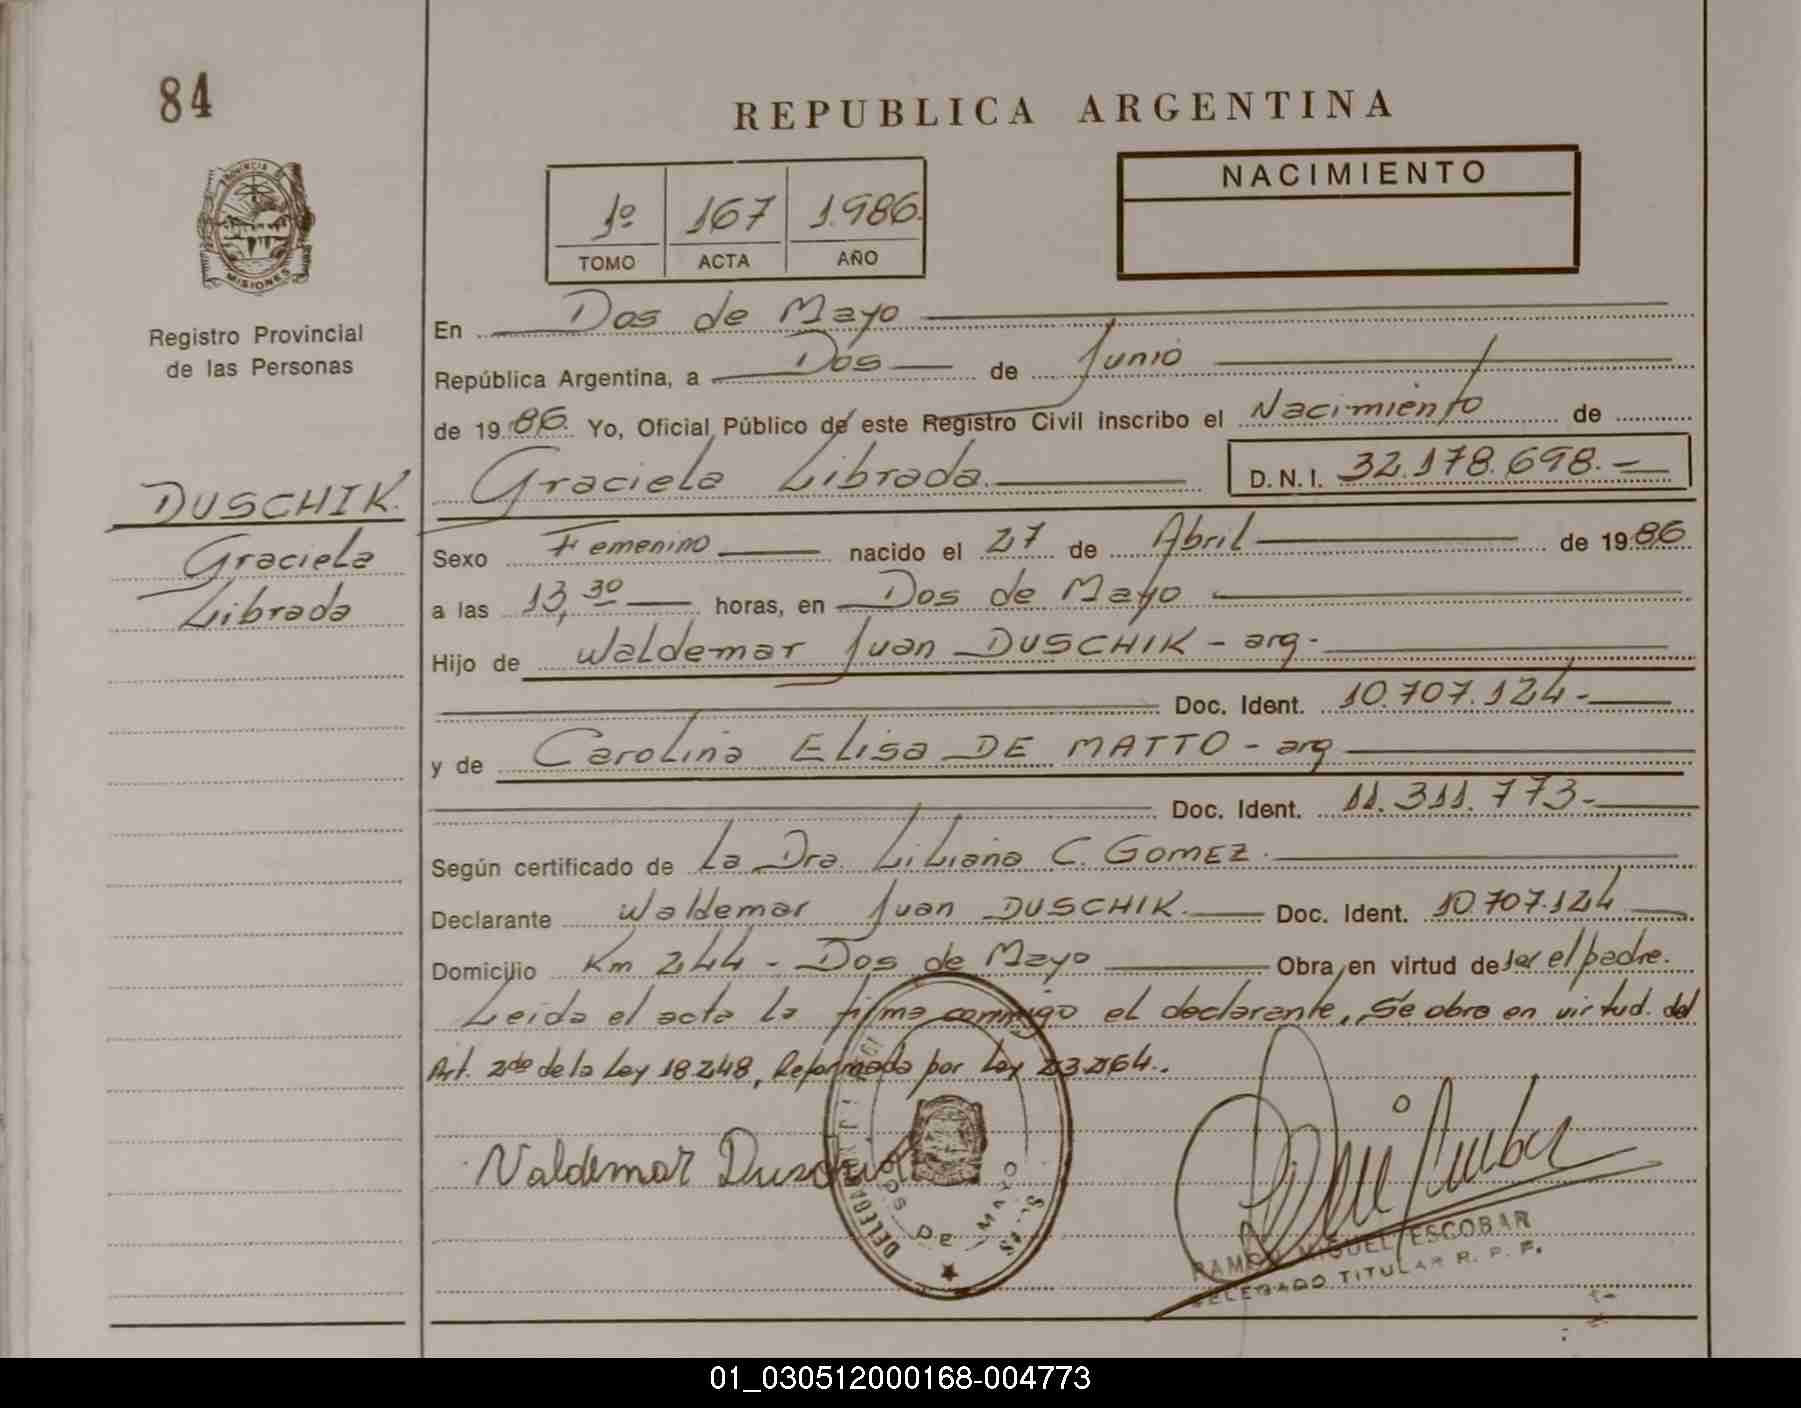 84
REPUBLICA ARGENTINA
PROVINCIA DE
MISIONES
Registro Provincial
de las Personas
1º 167 1.986.
TOMO ACTA AÑO
NACIMIENTO
En Dos de Mayo
República Argentina, a Dos de Junio
de 1986. Yo, Oficial Público de este Registro Civil inscribo el Nacimiento de
Graciela Librada. D. N. I. 32.178.698.-
DUSCHIK.
Graciela
Librada
Sexo Femenino nacido el 27 de Abril de 1986
a las 13,30 horas, en Dos de Mayo
Hijo de Waldemar Juan DUSCHIK - arg -
Doc. Ident. 10.707.124-
y de Carolina Elisa DE MATTO - arg
Doc. Ident. 11.311.773-
Según certificado de La Dra. Liliana C. GOMEZ.
Declarante Waldemar Juan DUSCHIK. Doc. Ident. 10.707.124
Domicilio Km 244 - Dos de Mayo Obra en virtud de ser el padre.
Leida el acta la firma conmigo el declarante, Se obra en virtud. del
Art. 2do de la Ley 18.248, Reformada por Ley 23.264..
Valdemar Duschik
DELEGACION
DOS DE MAYO
RAMON MIGUEL ESCOBAR
DELEGADO TITULAR R. P. P.
01_030512000168-004773